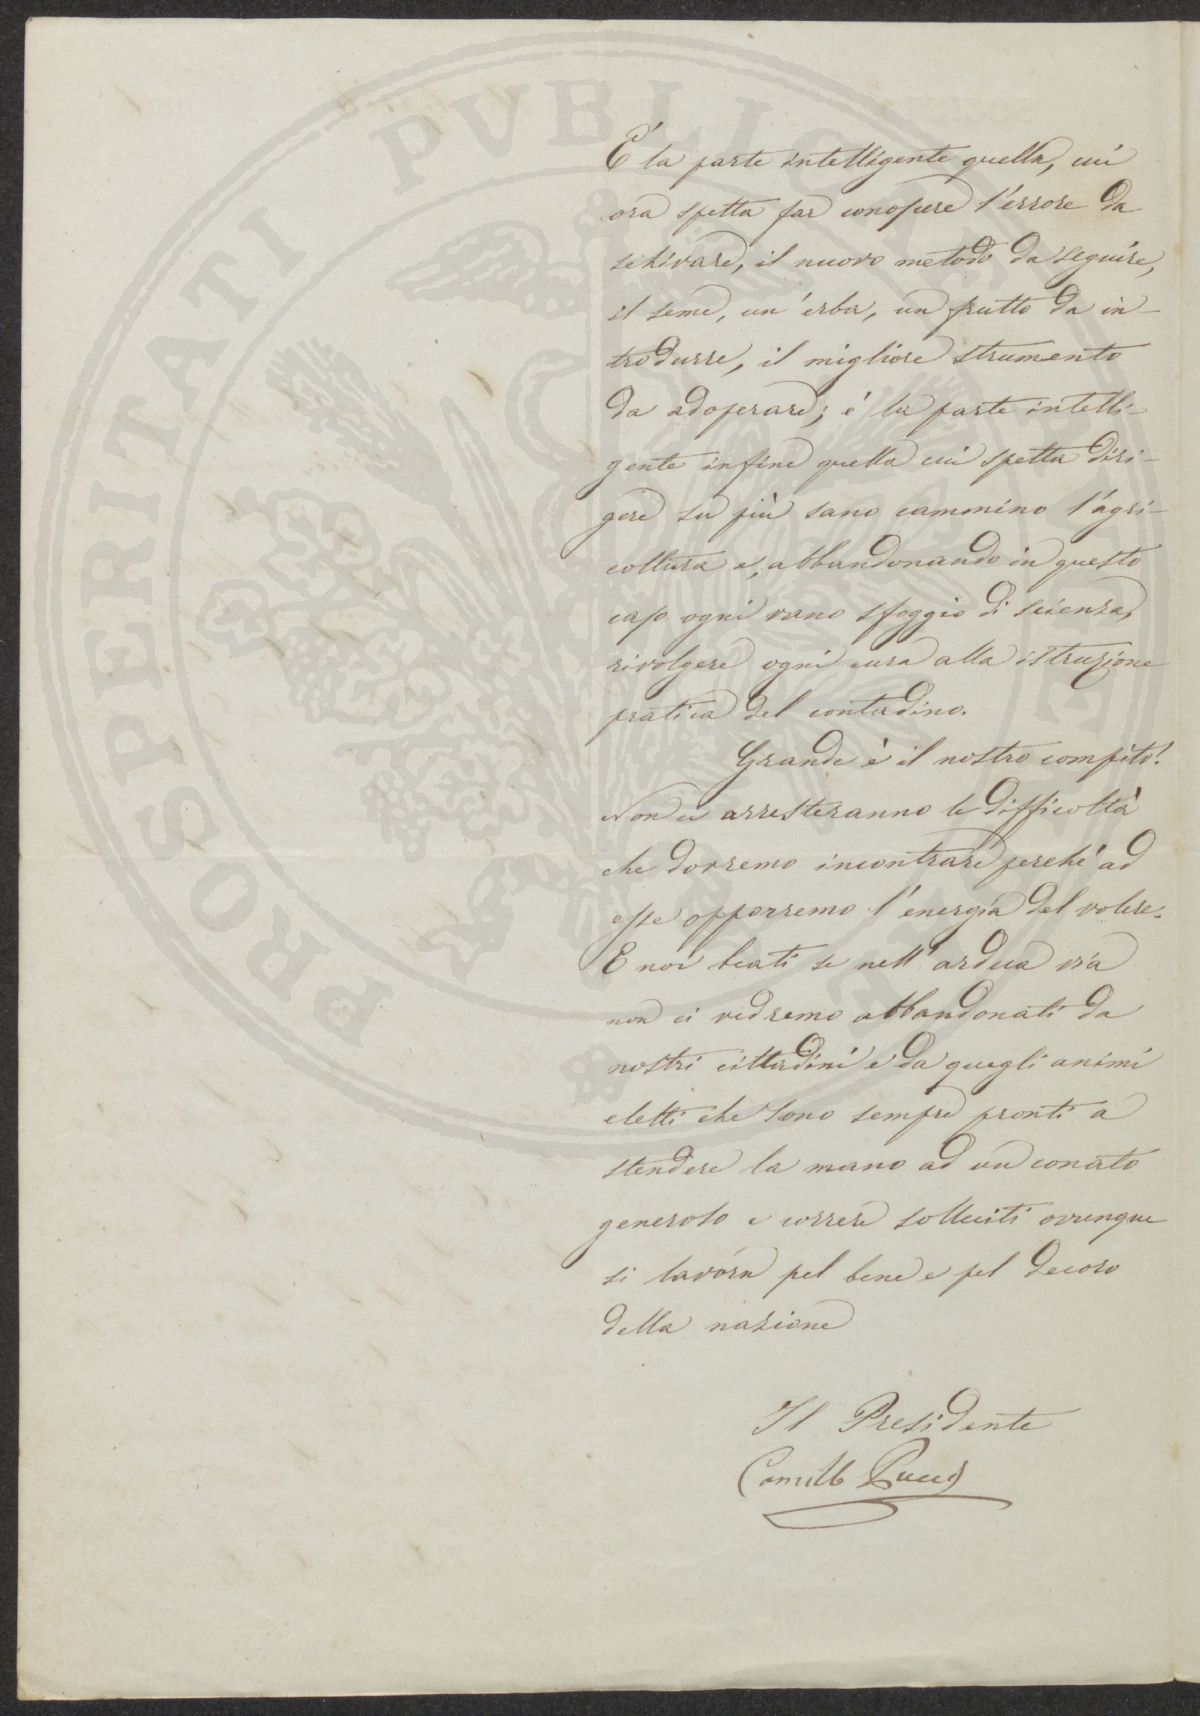 È la parte intelligente quella, cui
ora spetta far conoscere l'errore da
schivare, il nuovo metodo da seguire,
il seme, un' erba, un frutto da in-
trodurre, il migliore strumento
da adoperare; é la parte intelli-
gente infine quella cui spetta diri-
gere su più sano cammino l'agri-
coltura e, abbandonando in questo
caso ogni vano sfoggio di scienza,
rivolgere ogni cura alla istruzione
pratica del contadino.
Grande è il nostro compito!
Non ci arresteranno le difficoltà
che dovremo incontrare perché ad
esse opporremo l'energia del volere.
E noi beati se nell' ardua via
non ci vedremo abbandonati da
nostri cittadini e da quegli animi
eletti che sono sempre pronti a
stendere la mano ad un conato
generoso e correre solleciti ovunque
si lavora pel bene e pel decoro
della nazione
Il Presidente
Camillo Pucci
PROSPERITATI PVBLICAE